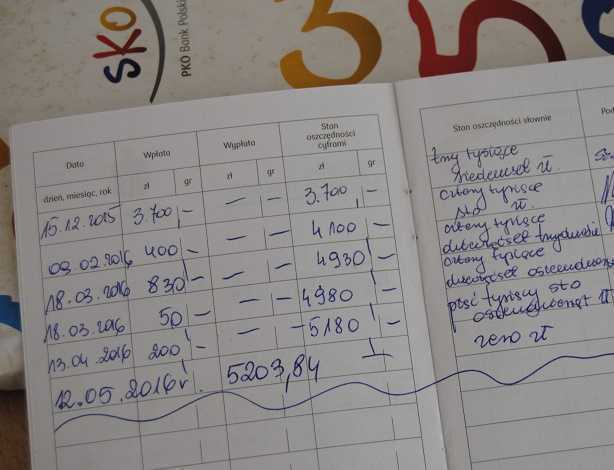 SKO
PKO Bank Polski
35
Data
Wpłata
Wypłata
Stan oszczędności cyframi
Stan oszczędności słownie
dzień, miesiąc, rok
zł gr
zł gr
zł gr
15.12.2015 3.700 - — - 3.700 -
09.02.2016 400 - — - 4100 -
18.03.2016 830 - — - 4930 -
18.03.2016 50 - — - 4980 -
13.04.2016 200 - — - 5180 -
12.05.2016r. 5203,84
trzy tysiące
siedemset zł.
cztery tysiące
sto zł.
cztery tysiące
dziewięćset trzydzieści
cztery tysiące
dziewięćset osiemdziesiąt
pięć tysięcy sto
osiemdziesiąt zł
zero zł